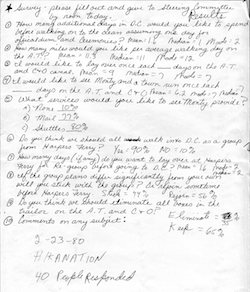 * Survey - please fill out and give to Steering Committee
by noon today. Results
① How many additional days in D.C. would you like to spend
before walking on to the ocean assuming one day for
museums and ceremonies? Mean = Median = Mode = 2
② How many miles would you like per average walking day on
the A.T.? Mean = Median = 11 Mode = 12
③ I would like to lay over one each ___ days on the A.T.
and C+O canal. Mean = 9 Median = 7 Mode = 7
④ I would like to see Monty and a town run once each
___ days on the A.T. and C+O? Mean = 6.2 Median = 7 Mode = 7
⑤ What services would you like to see Monty provide?
a) None 10%
b) Mail 77%
c) Shuttles 40%
⑥ Do you think we should all walk into D.C. as a group
from Harpers Ferry? Yes = 90% NO = 10%
⑦ How many days (if any) do you want to lay over at Harpers
Ferry for group before going to D.C.? Mean = Median = Mode =
⑧ If the group plans differ significantly from your own
will you stick with the group? Or rejoin sometime
before Harpers Ferry. Stick = 44% Rejoin = 56%
⑨ Do you think we should eliminate all boxes in the
trailer on the A.T. and C+O? Eliminate = 35%
Keep = 65%
⑩ Comments on any subject:
2-23-80
HIKANATION
40 People Responded